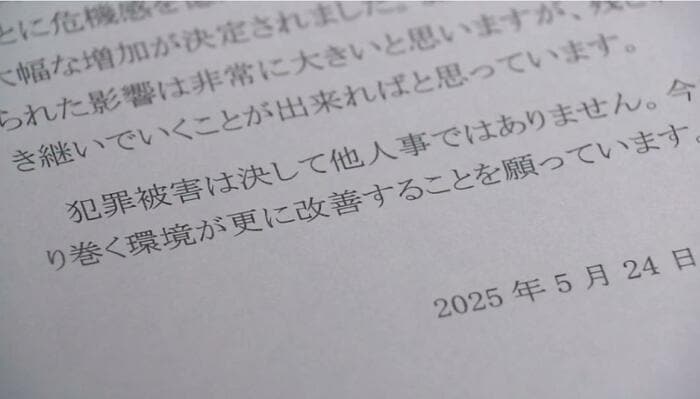 とに危機感を
大幅な増加が決定されました。
られた影響は非常に大きいと思いますが、残さ
き継いでいくことが出来ればと思っています。
犯罪被害は決して他人事ではありません。今
り巻く環境が更に改善することを願っています。
2025 年 5 月 24 日